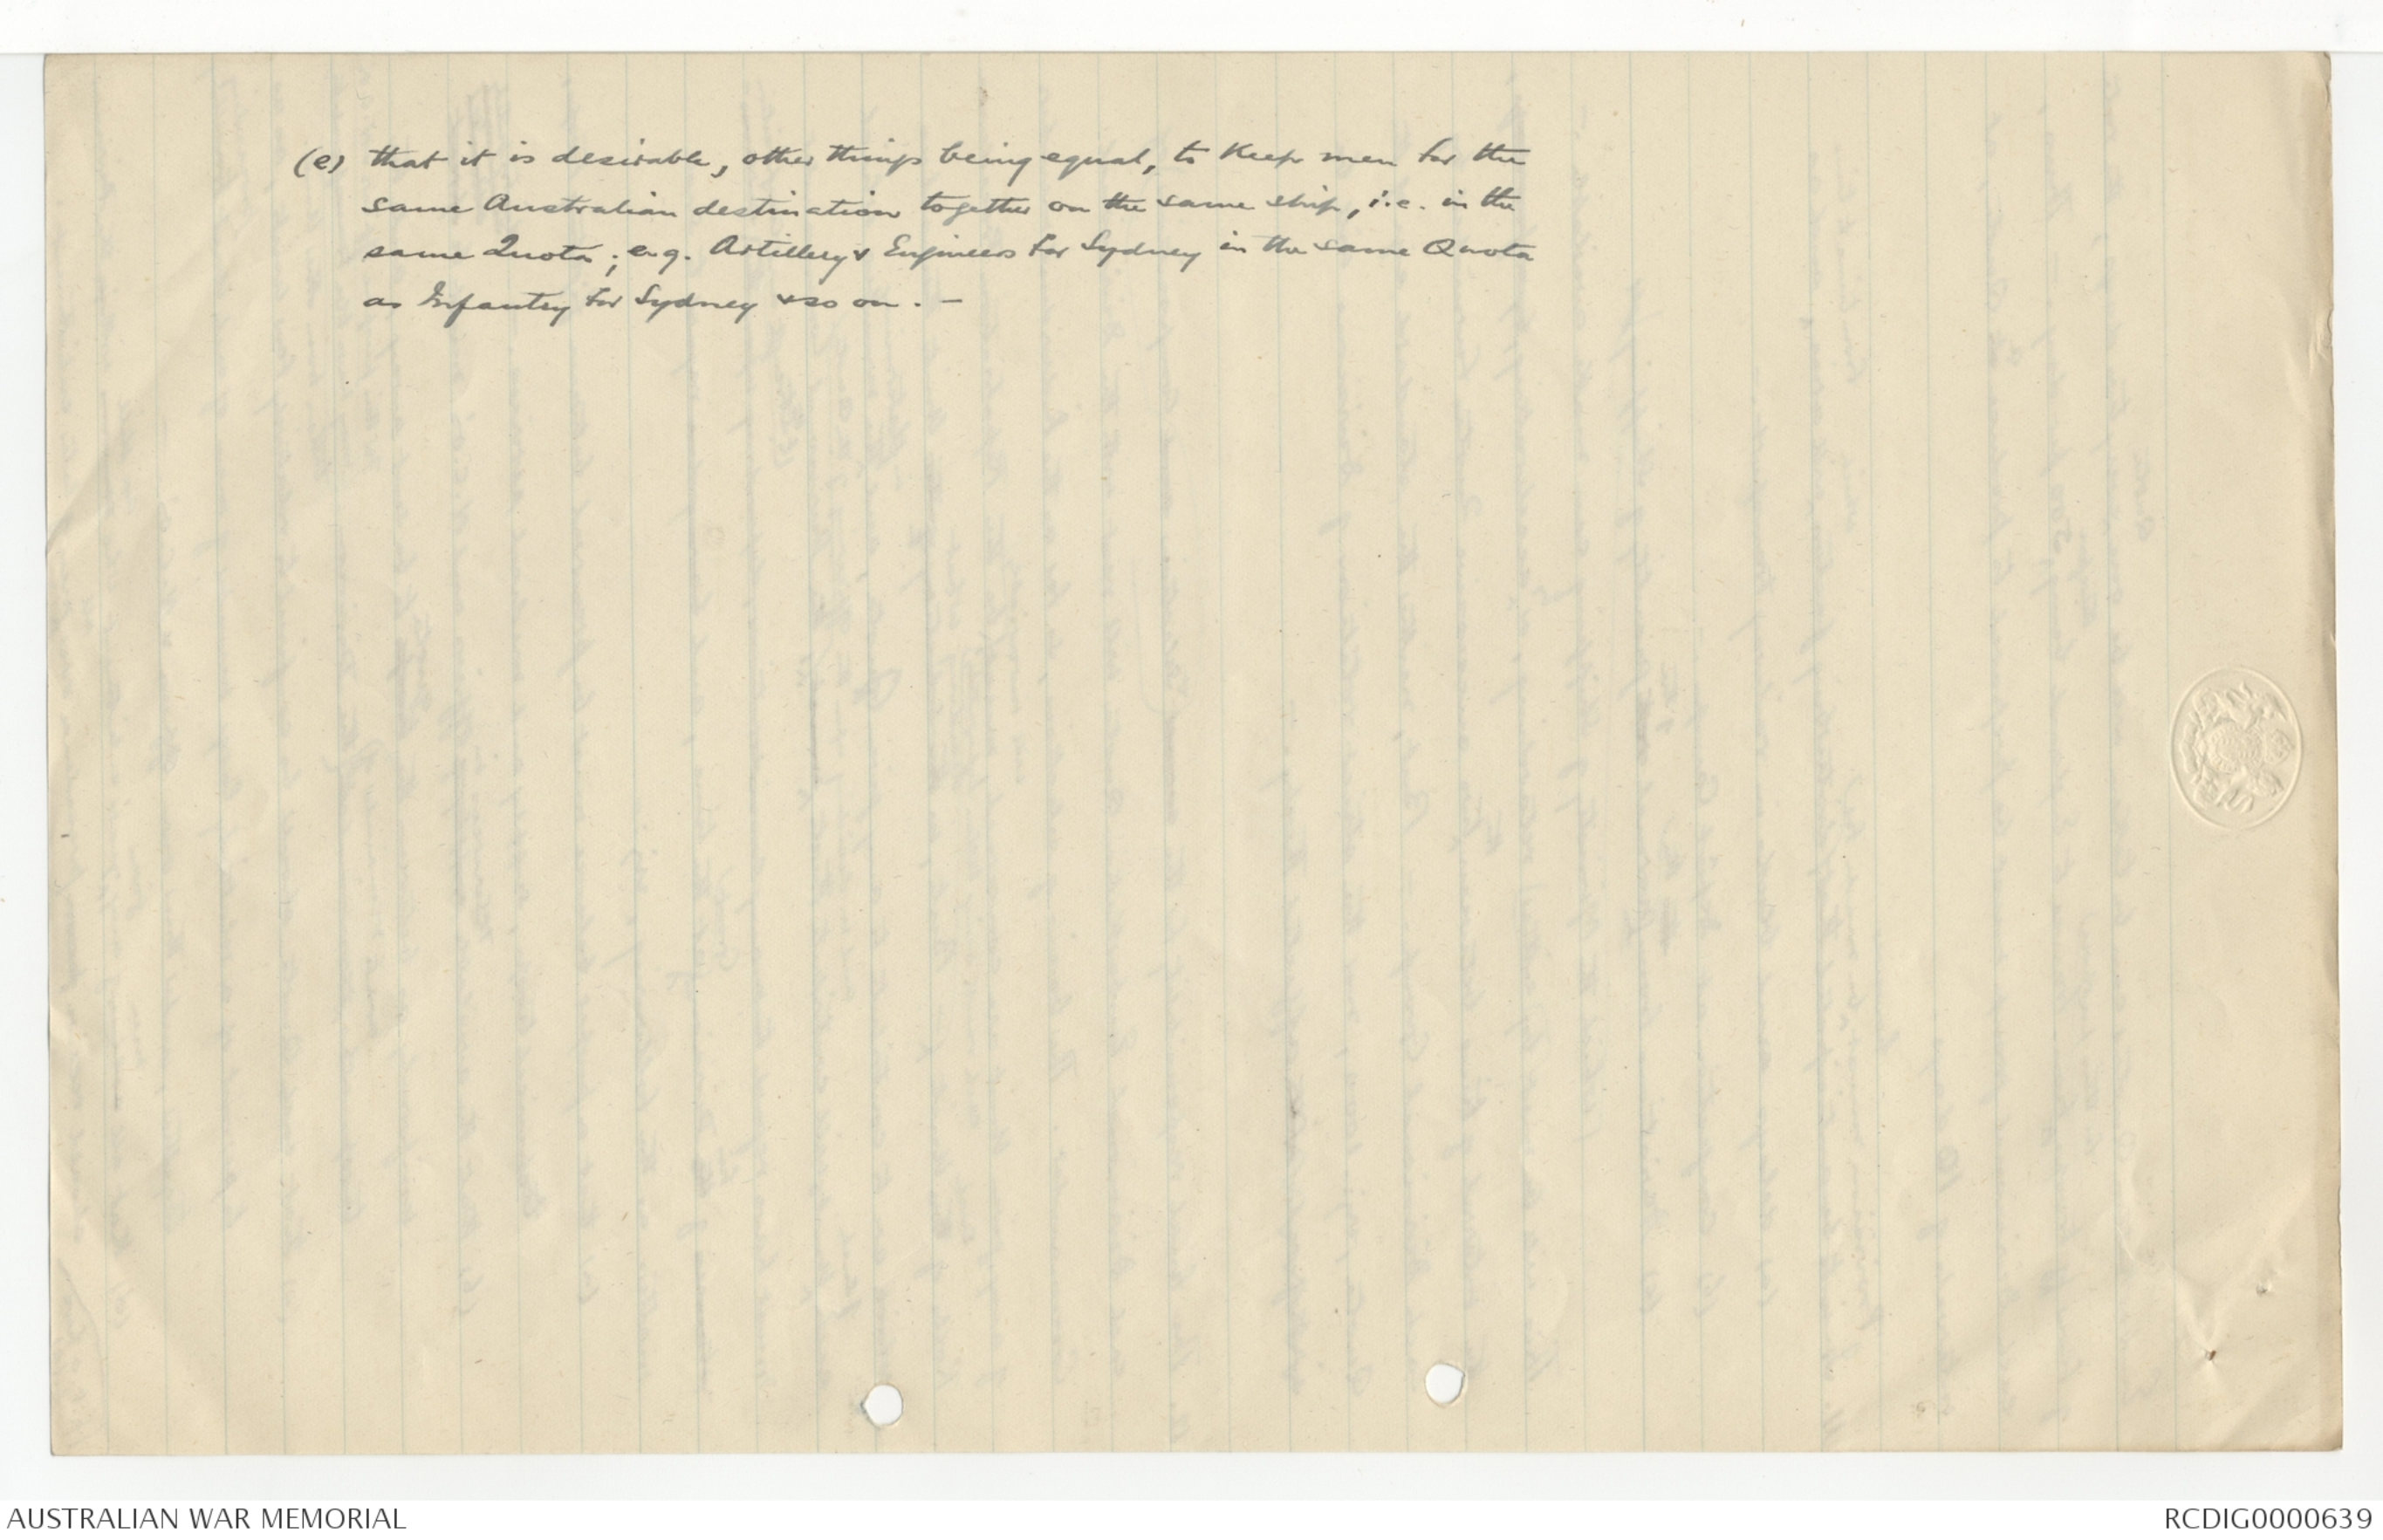 (e) that it is desirable, other things being equal, to keep men for the
same Australian destination together on the same ship, i.e. in the
same Quota; e.g. Artillery & Engineers for Sydney in the same Quota
as Infantry for Sydney & so on. —
AUSTRALIAN WAR MEMORIAL
RCDIG0000639